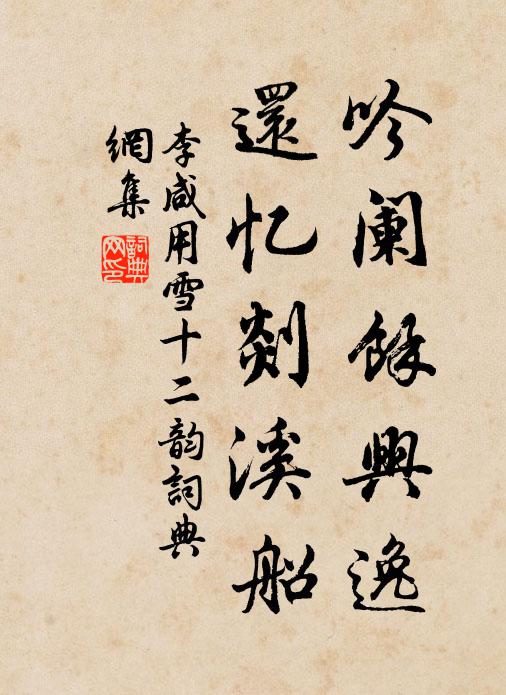 吟阑馀興逸
還忆剡溪船
李咸用雪十二韵詞典
網集
詞典
网印